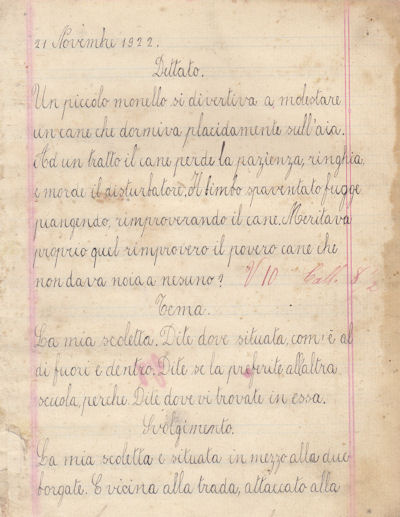 21 Novembre 1922.
Dettato.
Un piccolo monello si divertiva a molestare
un cane che dormiva placidamente sull'aia.
Ad un tratto il cane perde la pazienza, ringhia,
e morde il disturbatore. Il bimbo spaventato fugge
piangendo, rimproverando il cane. Meritava
proprio quel rimprovero il povero cane che
non dava noia a nesuno? 10 Call. 8
Tema.
La mia scoletta. Dite dove situata, com'è al
di fuori e dentro. Dite se la preferite all'altra
scuola, perche. Dite dove vi trovate in essa.
Svolgimento.
La mia scoletta e situata in mezzo alla due
borgate. E vicina alla trada, attaccato alla